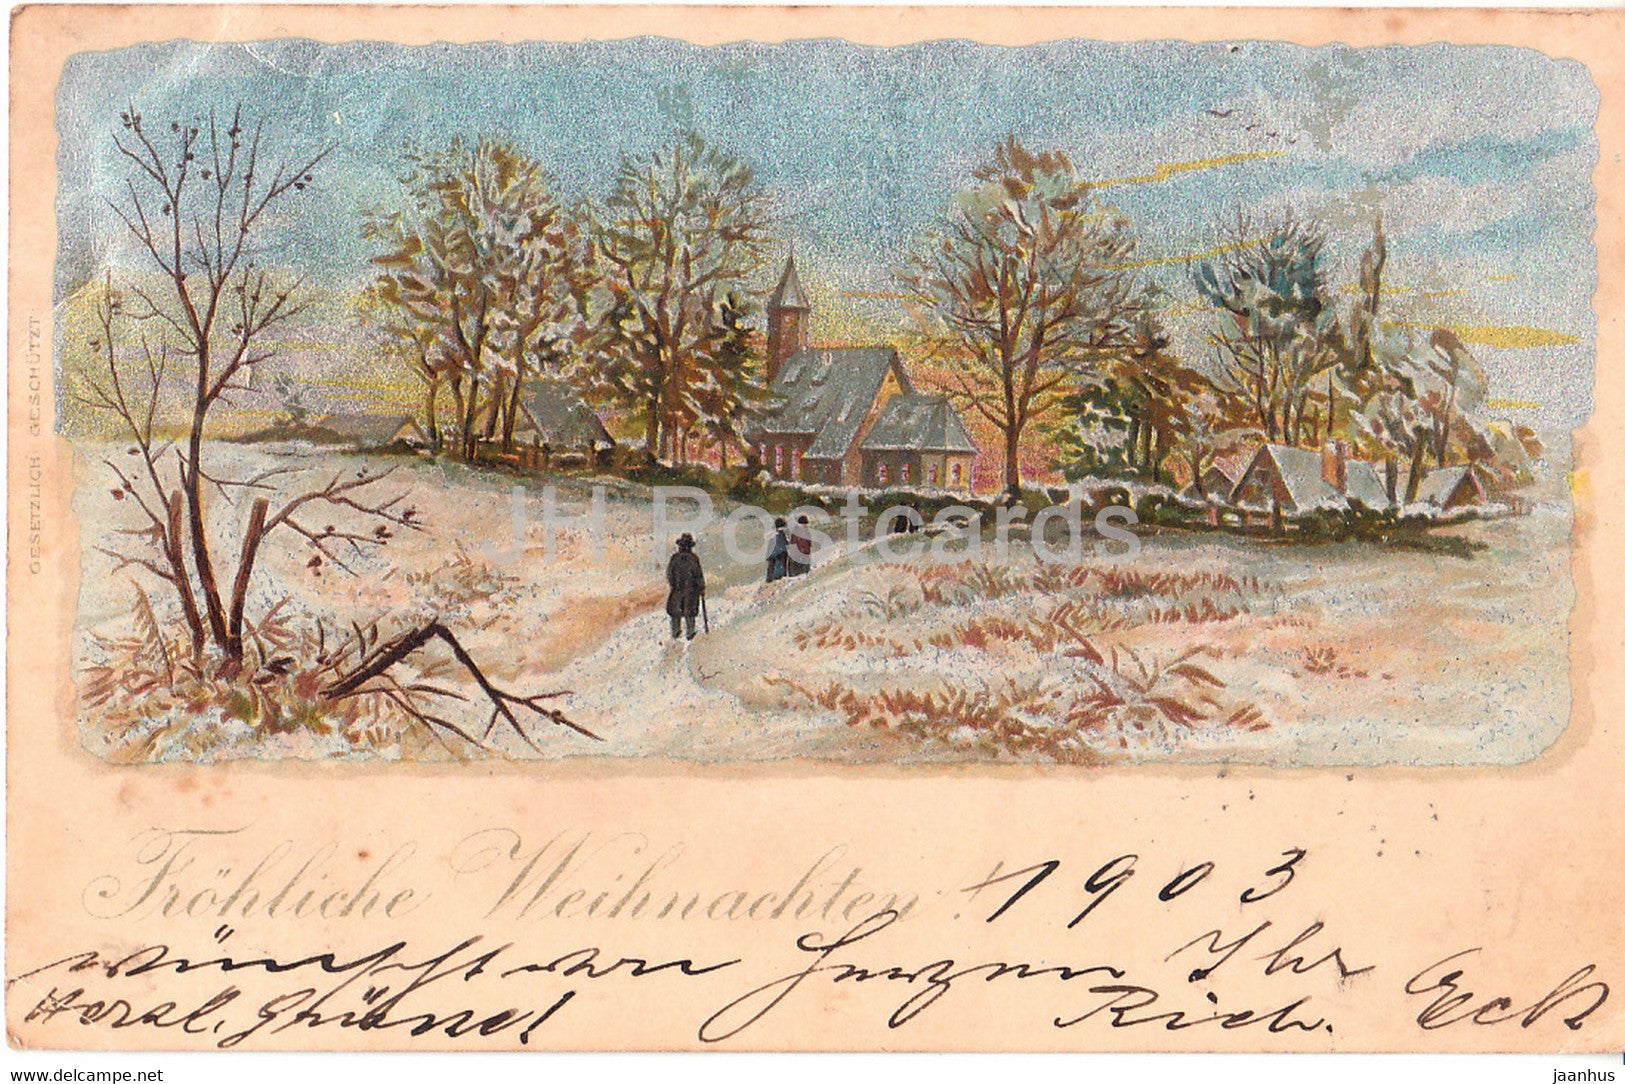 GESETZLICH GESCHÜTZT.
JH Postcards
Fröhliche Weihnachten! 1903
wünscht von Herzen Ihr
Herzl. Grüsse! Rich. Eck
delcampe.net
jaanhus